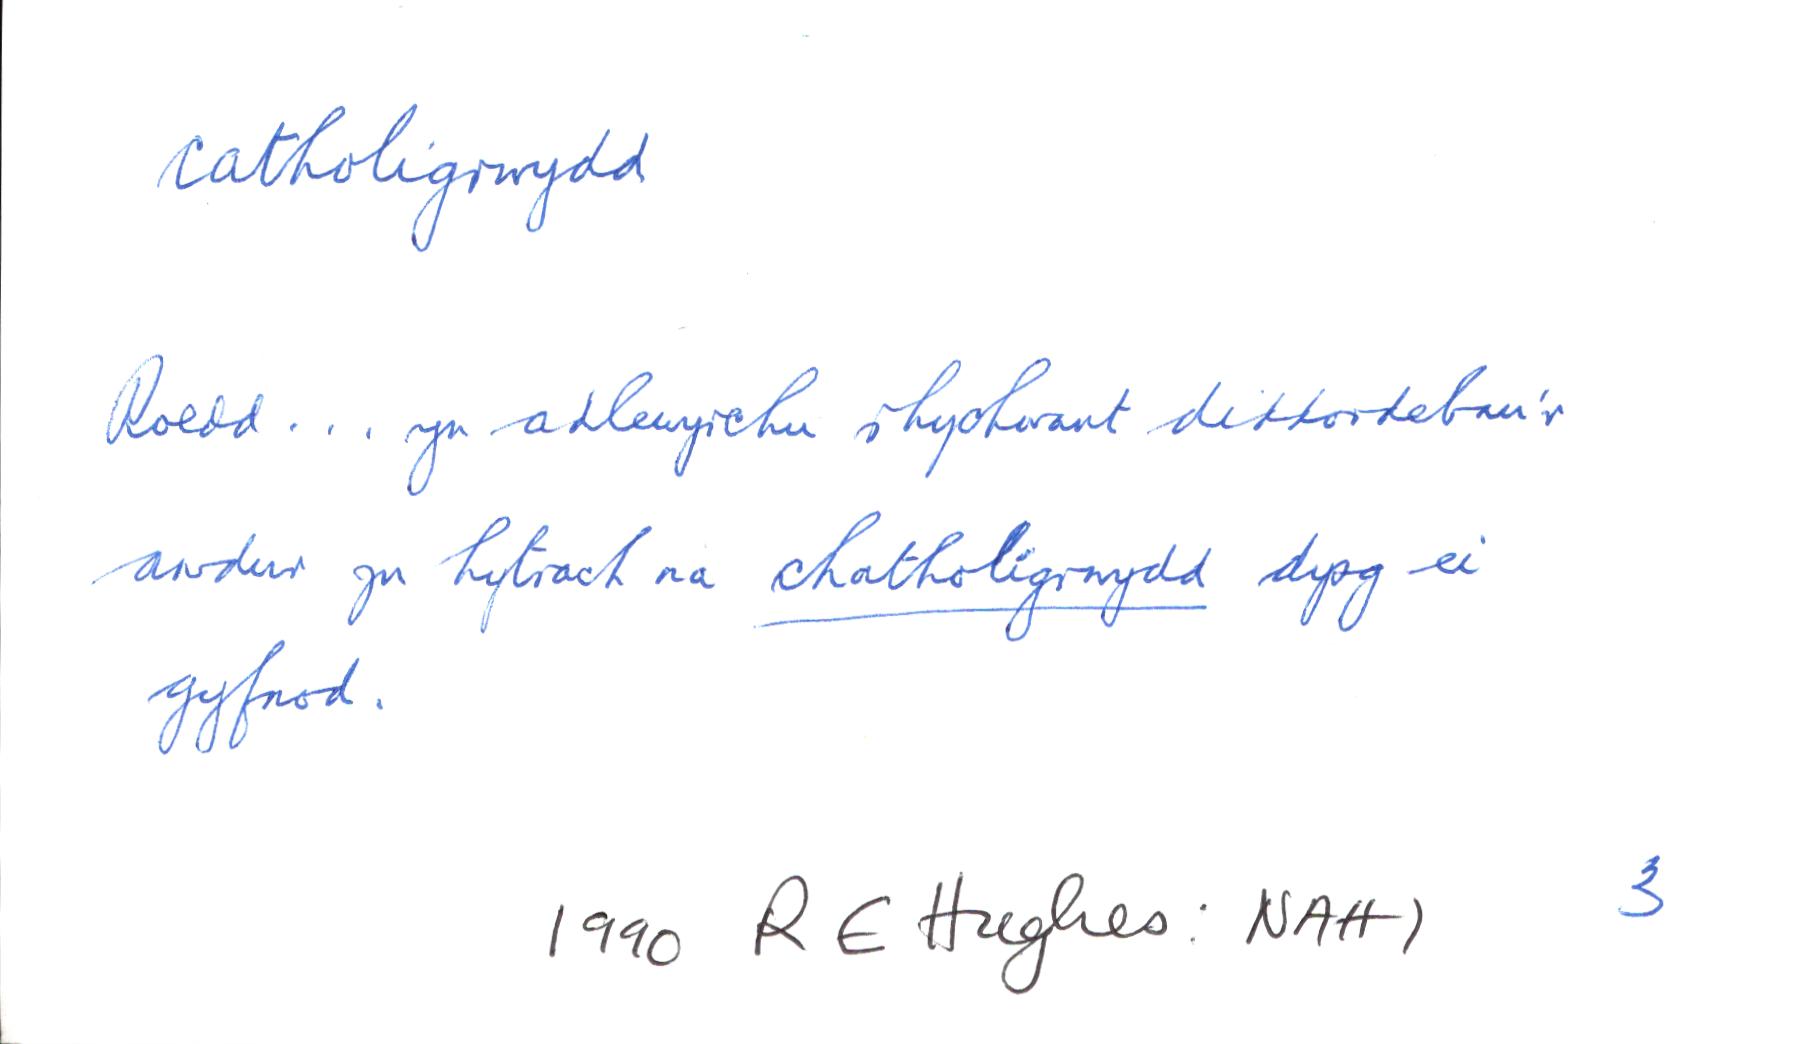 catholigrwydd
Roedd ... yn adlewyrchu rhychwant diddordebau'r
awdur yn hytrach na chatholigrwydd dysg ei
gyfnod.
1990 R E Hughes: NAHI 3